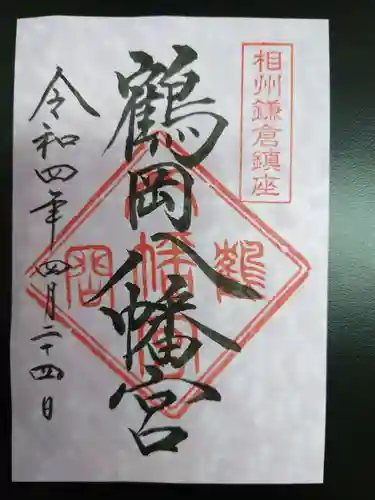 相州鎌倉鎮座
鶴岡八幡宮
令和四年四月二十四日